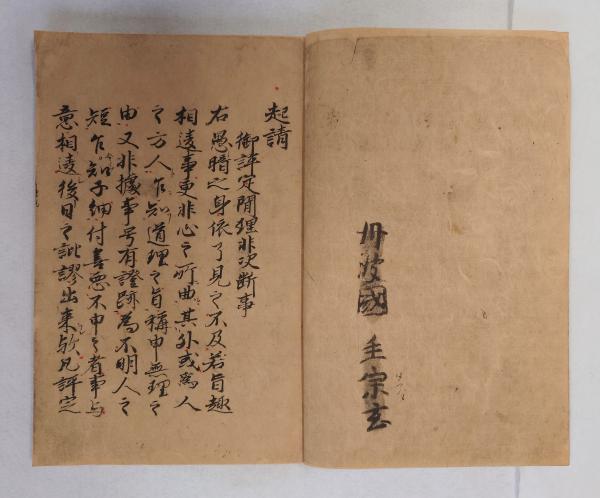 丹波國 宗玄
起請
御評定間理非决断事
右愚暗之身依了見之不及若旨趣
相違事更非心之所曲其外或為人
之方人乍知道理之旨稱申無理之
由又非據事号有證跡為不明人之
短乍知子細付善悪不申之者事与
意相違後日之訛謬出来欤凡評定